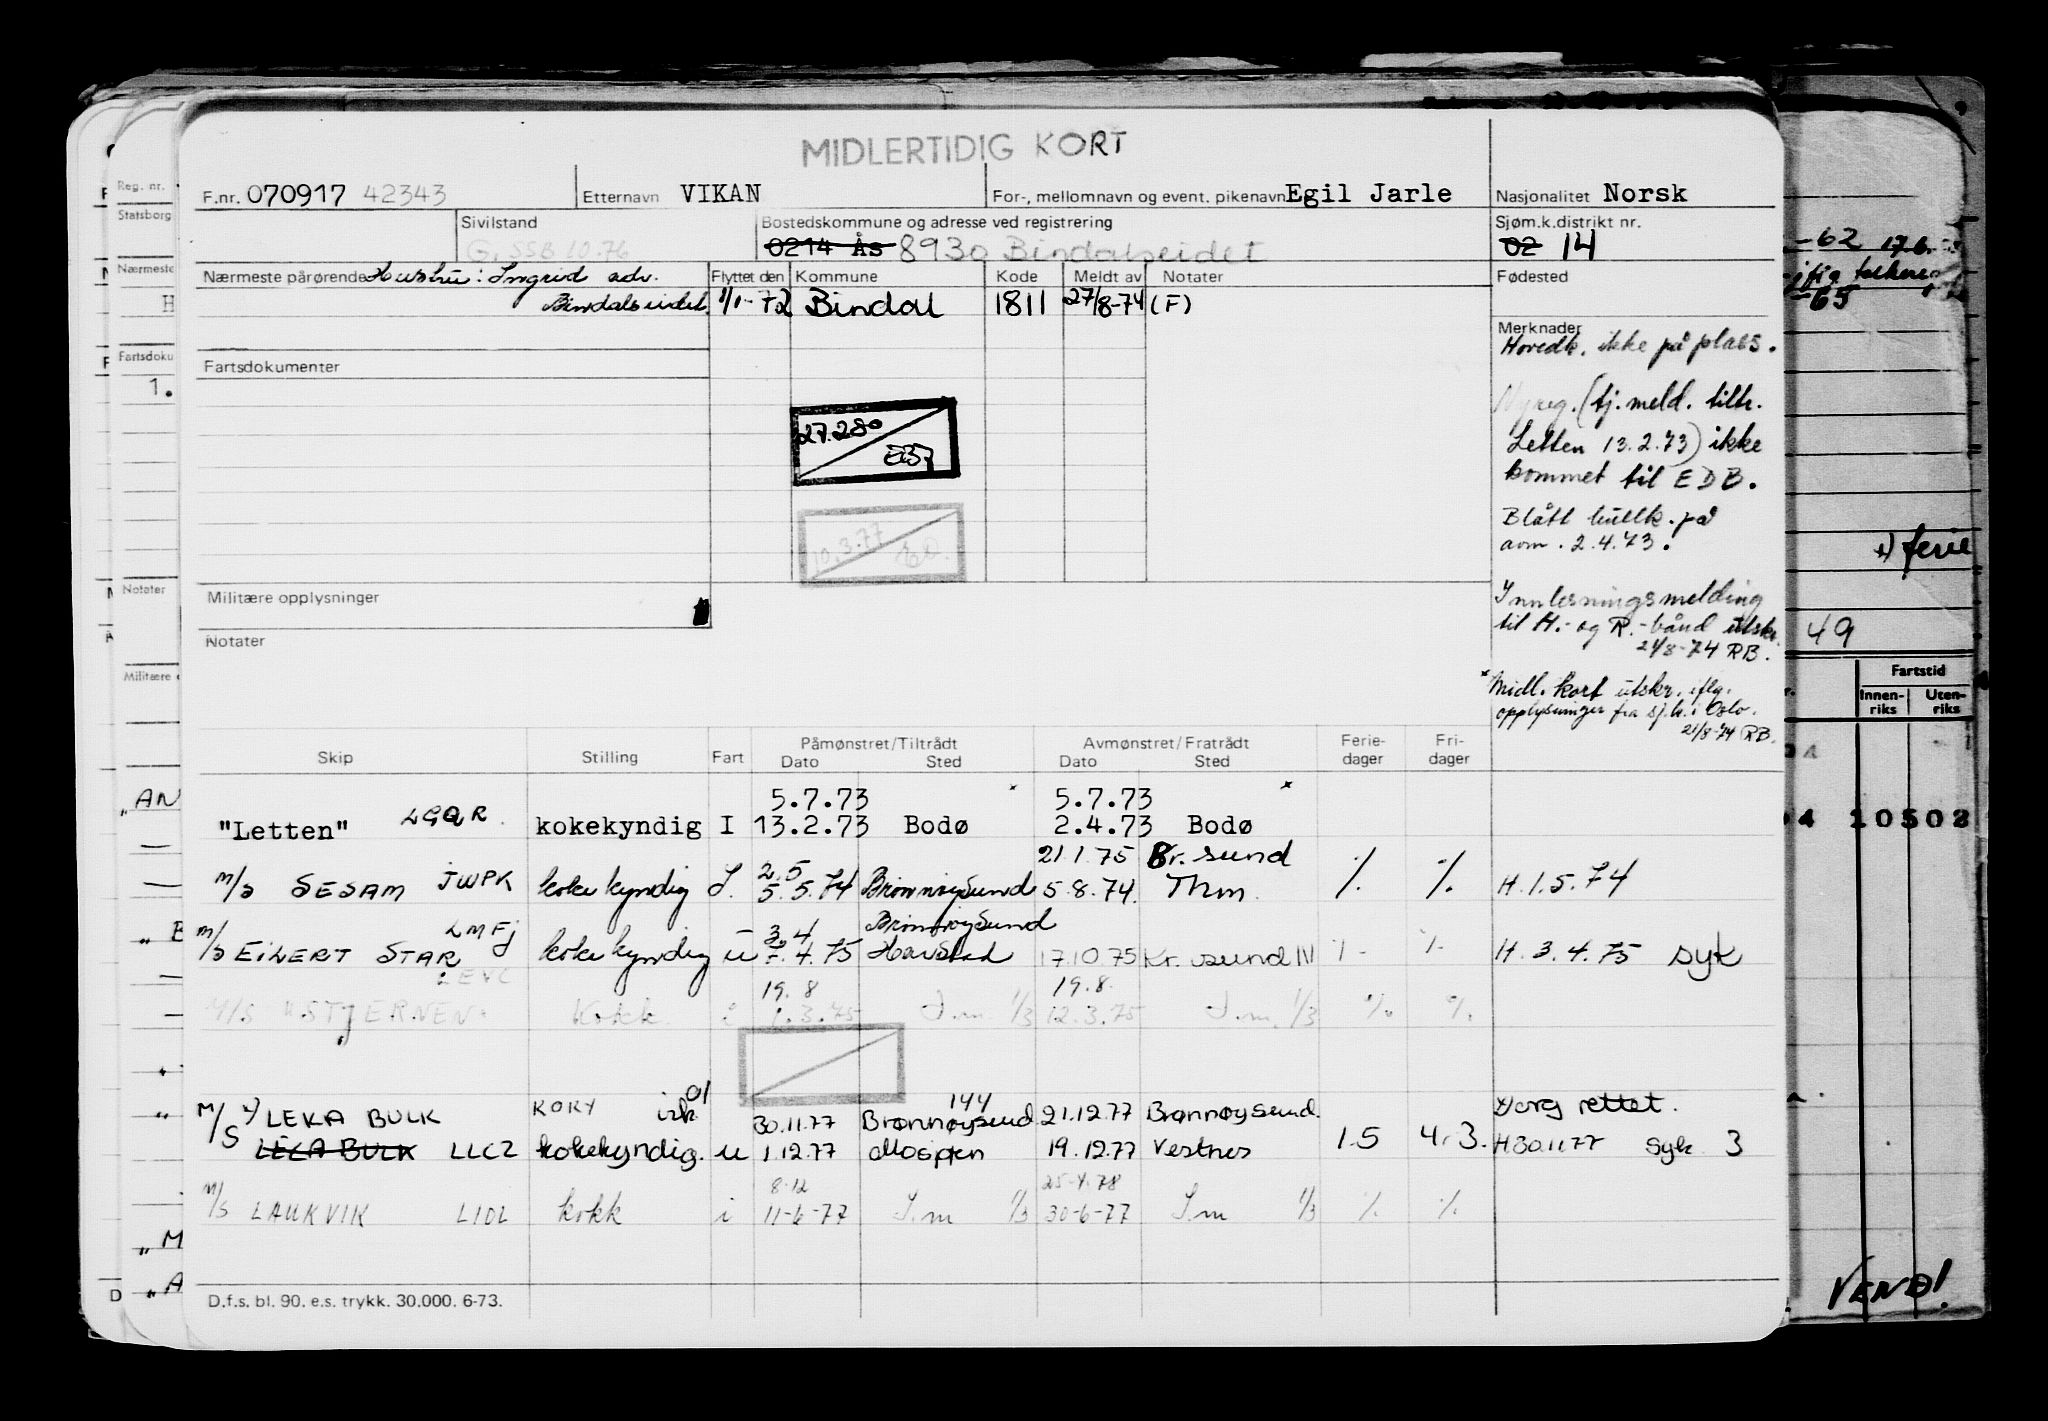 MIDLERTIDIG KORT
F.nr. 070917 42343 Etternavn VIKAN For-, mellomnavn og event. pikenavn Egil Jarle Nasjonalitet Norsk
Sivilstand Bostedskommune og adresse ved registrering Sjøm.k.distrikt nr.
G. SSB 10.76 0214 Ås 8930 Bindalseidet 02 14
Nærmeste pårørende Hustru: Ingrid adr. Flyttet den Kommune Kode Meldt av Notater Fødested
Bindalseidet 1/1-72 Bindal 1811 27/8-74 (F)
Merknader
Hovedk. ikke på plass.
Fartsdokumenter
Nyreg. (tj.meld. tiltr.
Letten 13.2.73) ikke
kommet til EDB.
27.280
Blått hullk. på
avm. 2.4.73.
10.3.77
Militære opplysninger
Innlesningsmelding
til H.- og R.-bånd utskr.
21/8-74 RB.
Notater
Midl. kort utskr. iflg.
opplysninger fra sj.k. i Oslo.
21/8-74 RB.
Skip Stilling Fart Påmønstret/Tiltrådt Avmønstret/Fratrådt Ferie- Fri-
Dato Sted Dato Sted dager dager
5.7.73 5.7.73
"Letten" LGQR. kokekyndig I 13.2.73 Bodø 2.4.73 Bodø
21.1.75 Br.sund
2.5
M/S SESAM JWPK kokekyndig I. 5.5.74 Brønnøysund 5.8.74. Thm. % % H.1.5.74
LMFJ 3.4 Brønnøysund
M/S EILERT STAR kokekyndig u .4.75 Havstad 17.10.75 Kr. sund N H. 3.4.75 syk
LEVC 19.8 19.8.
M/S STJERNEN Kokk i 1.3.75 I.m. 1/3 12.3.75 I.m. 1/3 % %
01 144
M/S LEKA BULK KORY 30.11.77 Brønnøysund 21.12.77 Brønnøysund rettet.
LEKA BULK LLCZ kokekyndig. u 1.12.77 Mosjøen 19.12.77 Vestnes 1.5 4.3. H30.11.77 Syk 3
8.12 25.4.78
M/S LAUKVIK LIDL kokk i 11-6-77 I.m 1/3 30-6-77 I.m 1/3 % %
D.f.s. bl. 90. e.s. trykk. 30.000. 6-73.
Reg. nr.
Statsborg
Nærmeste
Fartsdoku
1.
Notater
Militære
-62
-65
ferie
49
Fartstid
Innen- Uten-
riks riks
10502
VEND!